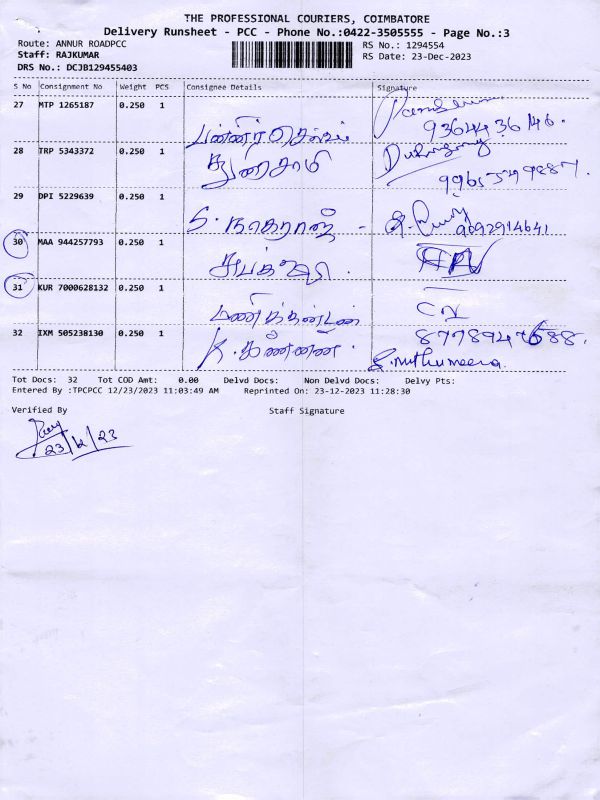 THE PROFESSIONAL COURIERS, COIMBATORE
Delivery Runsheet - PCC - Phone No.:0422-3505555 - Page No.:3
Route: ANNUR ROADPCC
RS No.: 1294554
Staff: RAJKUMAR
RS Date: 23-Dec-2023
DRS No.: DCJB129455403
S No Consignment No Weight PCS Consignee Details Signature
27 MTP 1265187 0.250 1
பன்னீர் செல்வம் 93644 36146.
28 TRP 5343372 0.250 1
துரைசாமி
29 DPI 5229639 0.250 1
S. நாகராஜ் - 9092914641
30 MAA 944257793 0.250 1
31 KUR 7000628132 0.250 1
மணிகண்டன் CN
32 IXM 505238130 0.250 1
K. கண்ணன். S. muthumeera
Tot Docs: 32 Tot COD Amt: 0.00 Delvd Docs: Non Delvd Docs: Delvy Pts:
Entered By :TPCPCC 12/23/2023 11:03:49 AM Reprinted On: 23-12-2023 11:28:30
Verified By Staff Signature
23/12/23